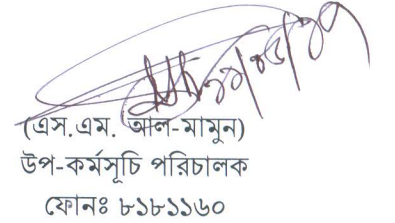 (এস.এম. আল-মামুন)
উপ-কর্মসূচি পরিচালক
ফোনঃ ৮১৮১১৬০